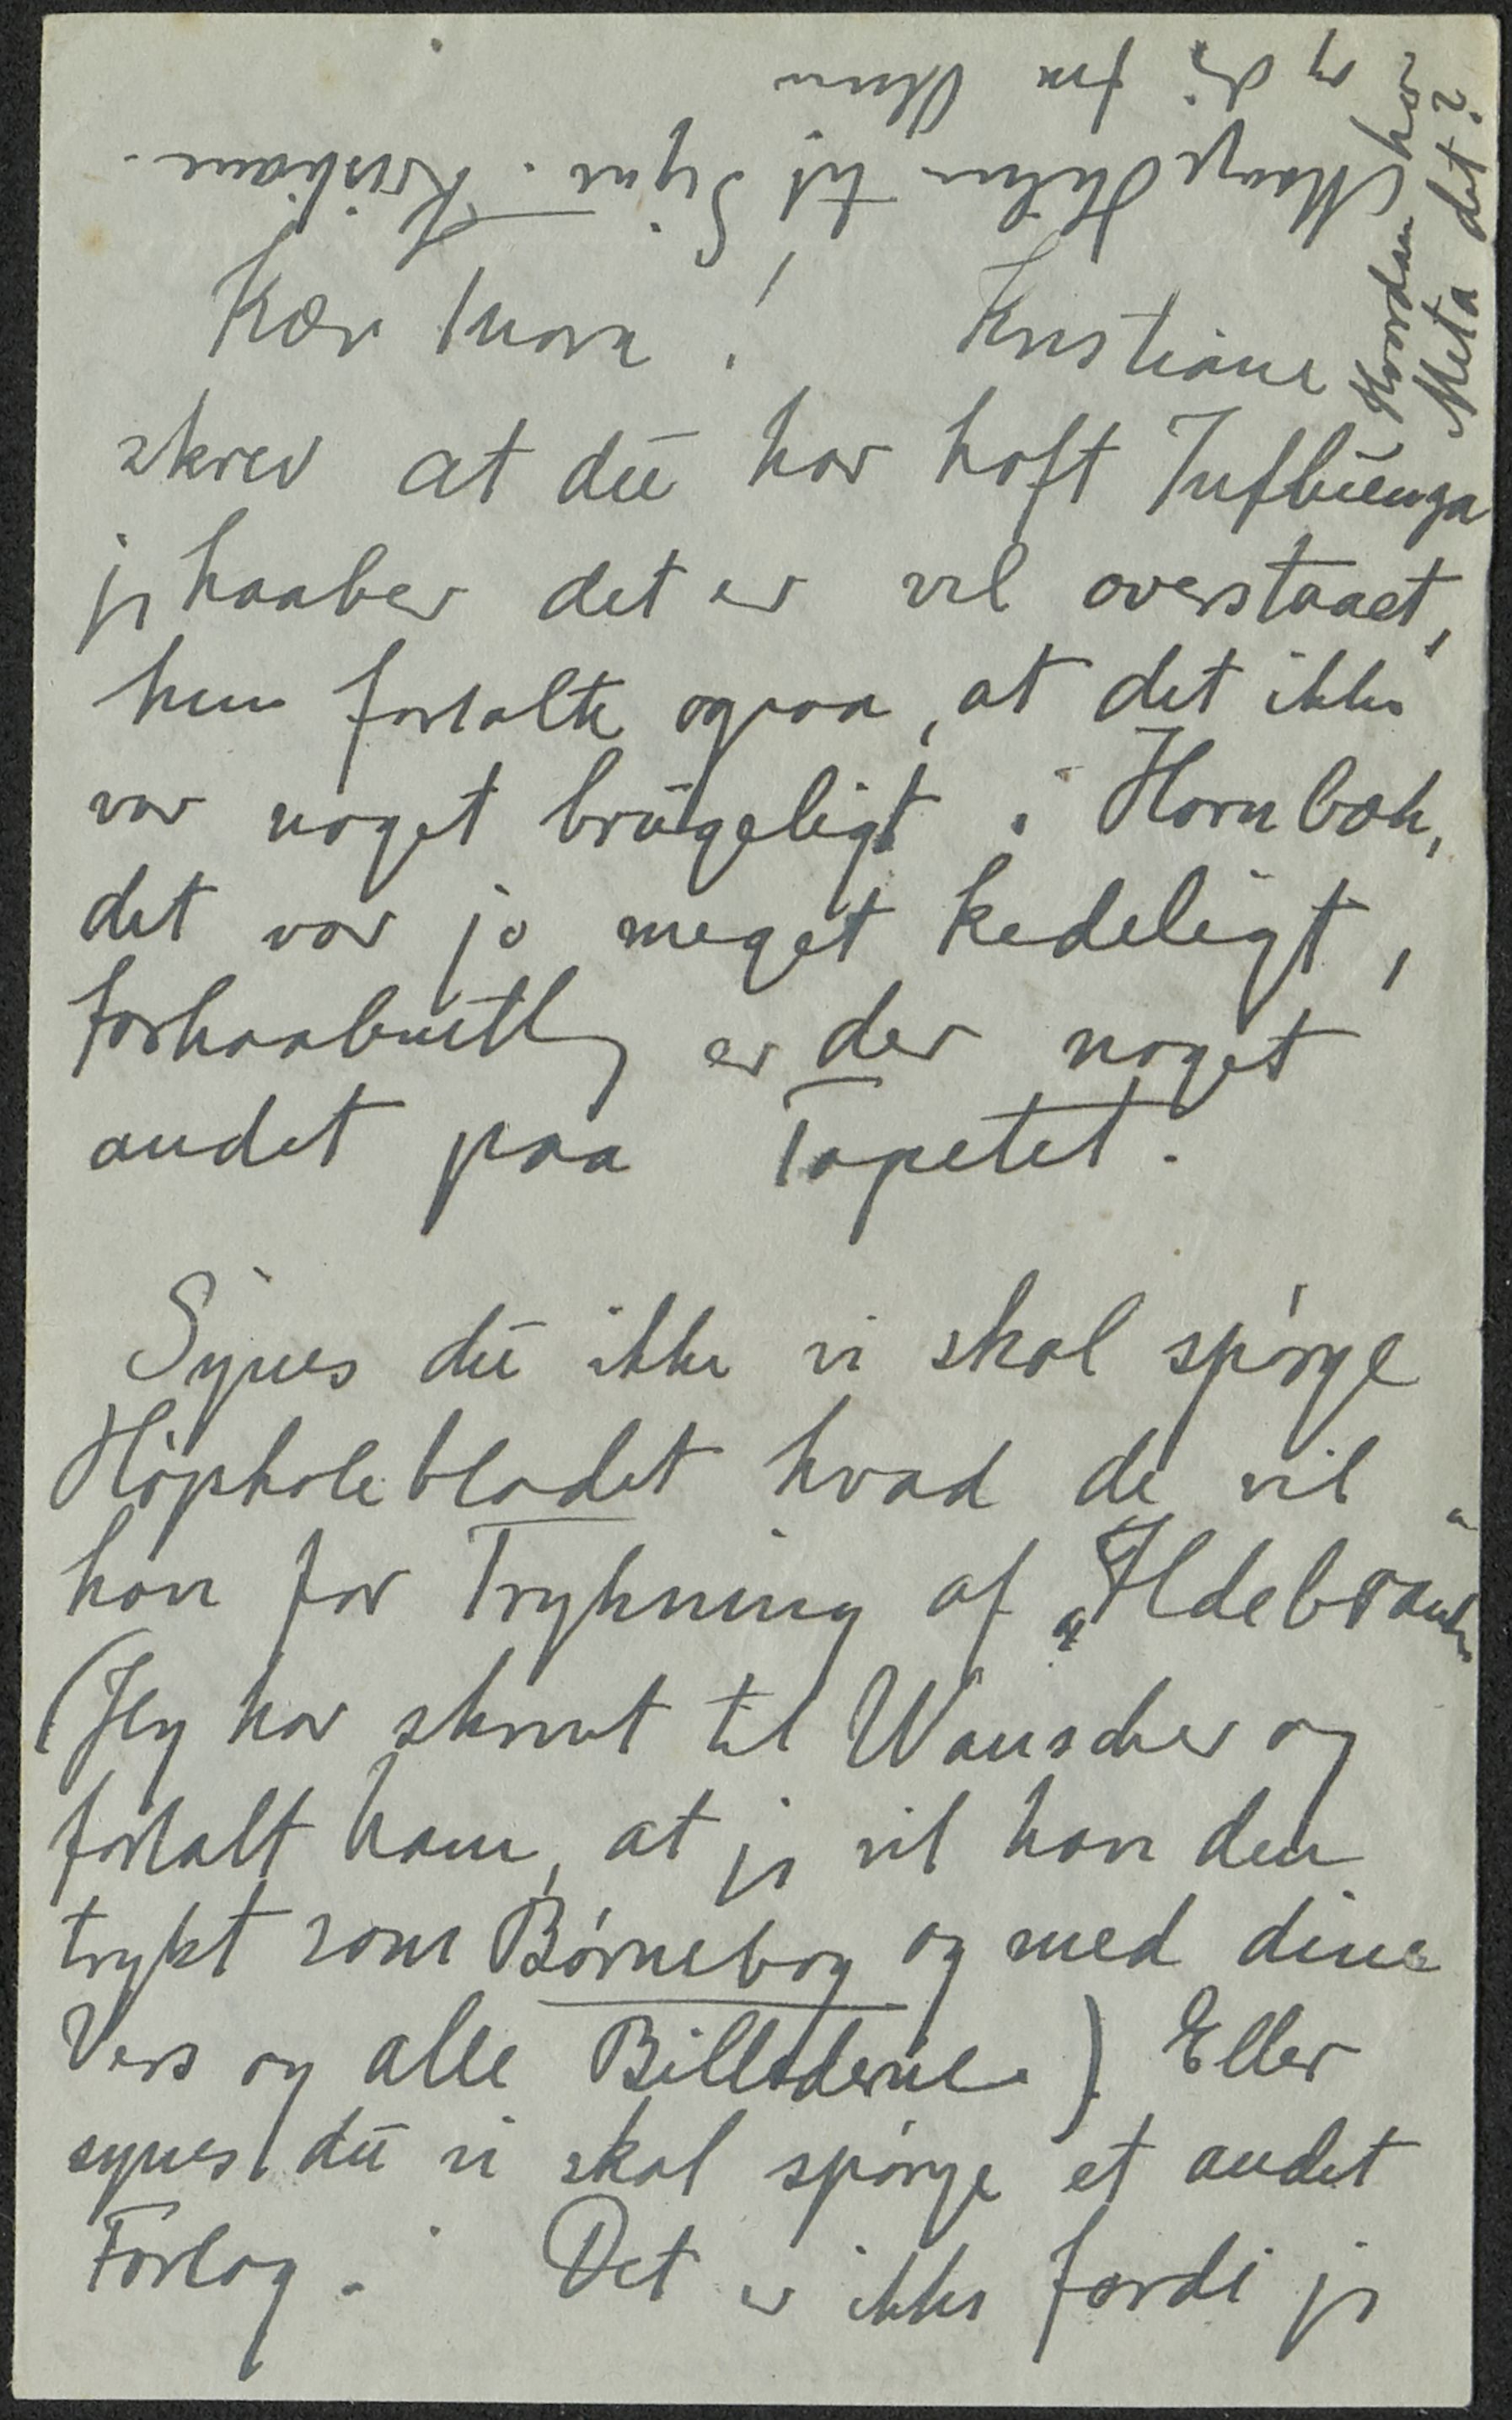 Kær Mora! Kristiane
skrev at du har haft Influenza
jeg haaber det er vel overstaaet,
hun fortalte ogsaa, at det ikke
var noget brugeligt i Hornbæk,
det var jo meget kedeligt,
forhaabentlig er der noget
andet paa Tapetet.
Synes du ikke vi skal spørge
Højskolebladet hvad de vil
have for Trykning af "Ildebranden"
(Jeg har skrevet til Wanscher og
fortalt ham, at jeg vil have den
trykt som Børnebog og med dine
Vers og alle Billederne.) Eller
synes du vi skal spørge et andet
Forlag. Det er ikke fordi jeg
Mange Hilsner til Signe. Kristiane.
og dig fra
Hvordan har
Meta det?